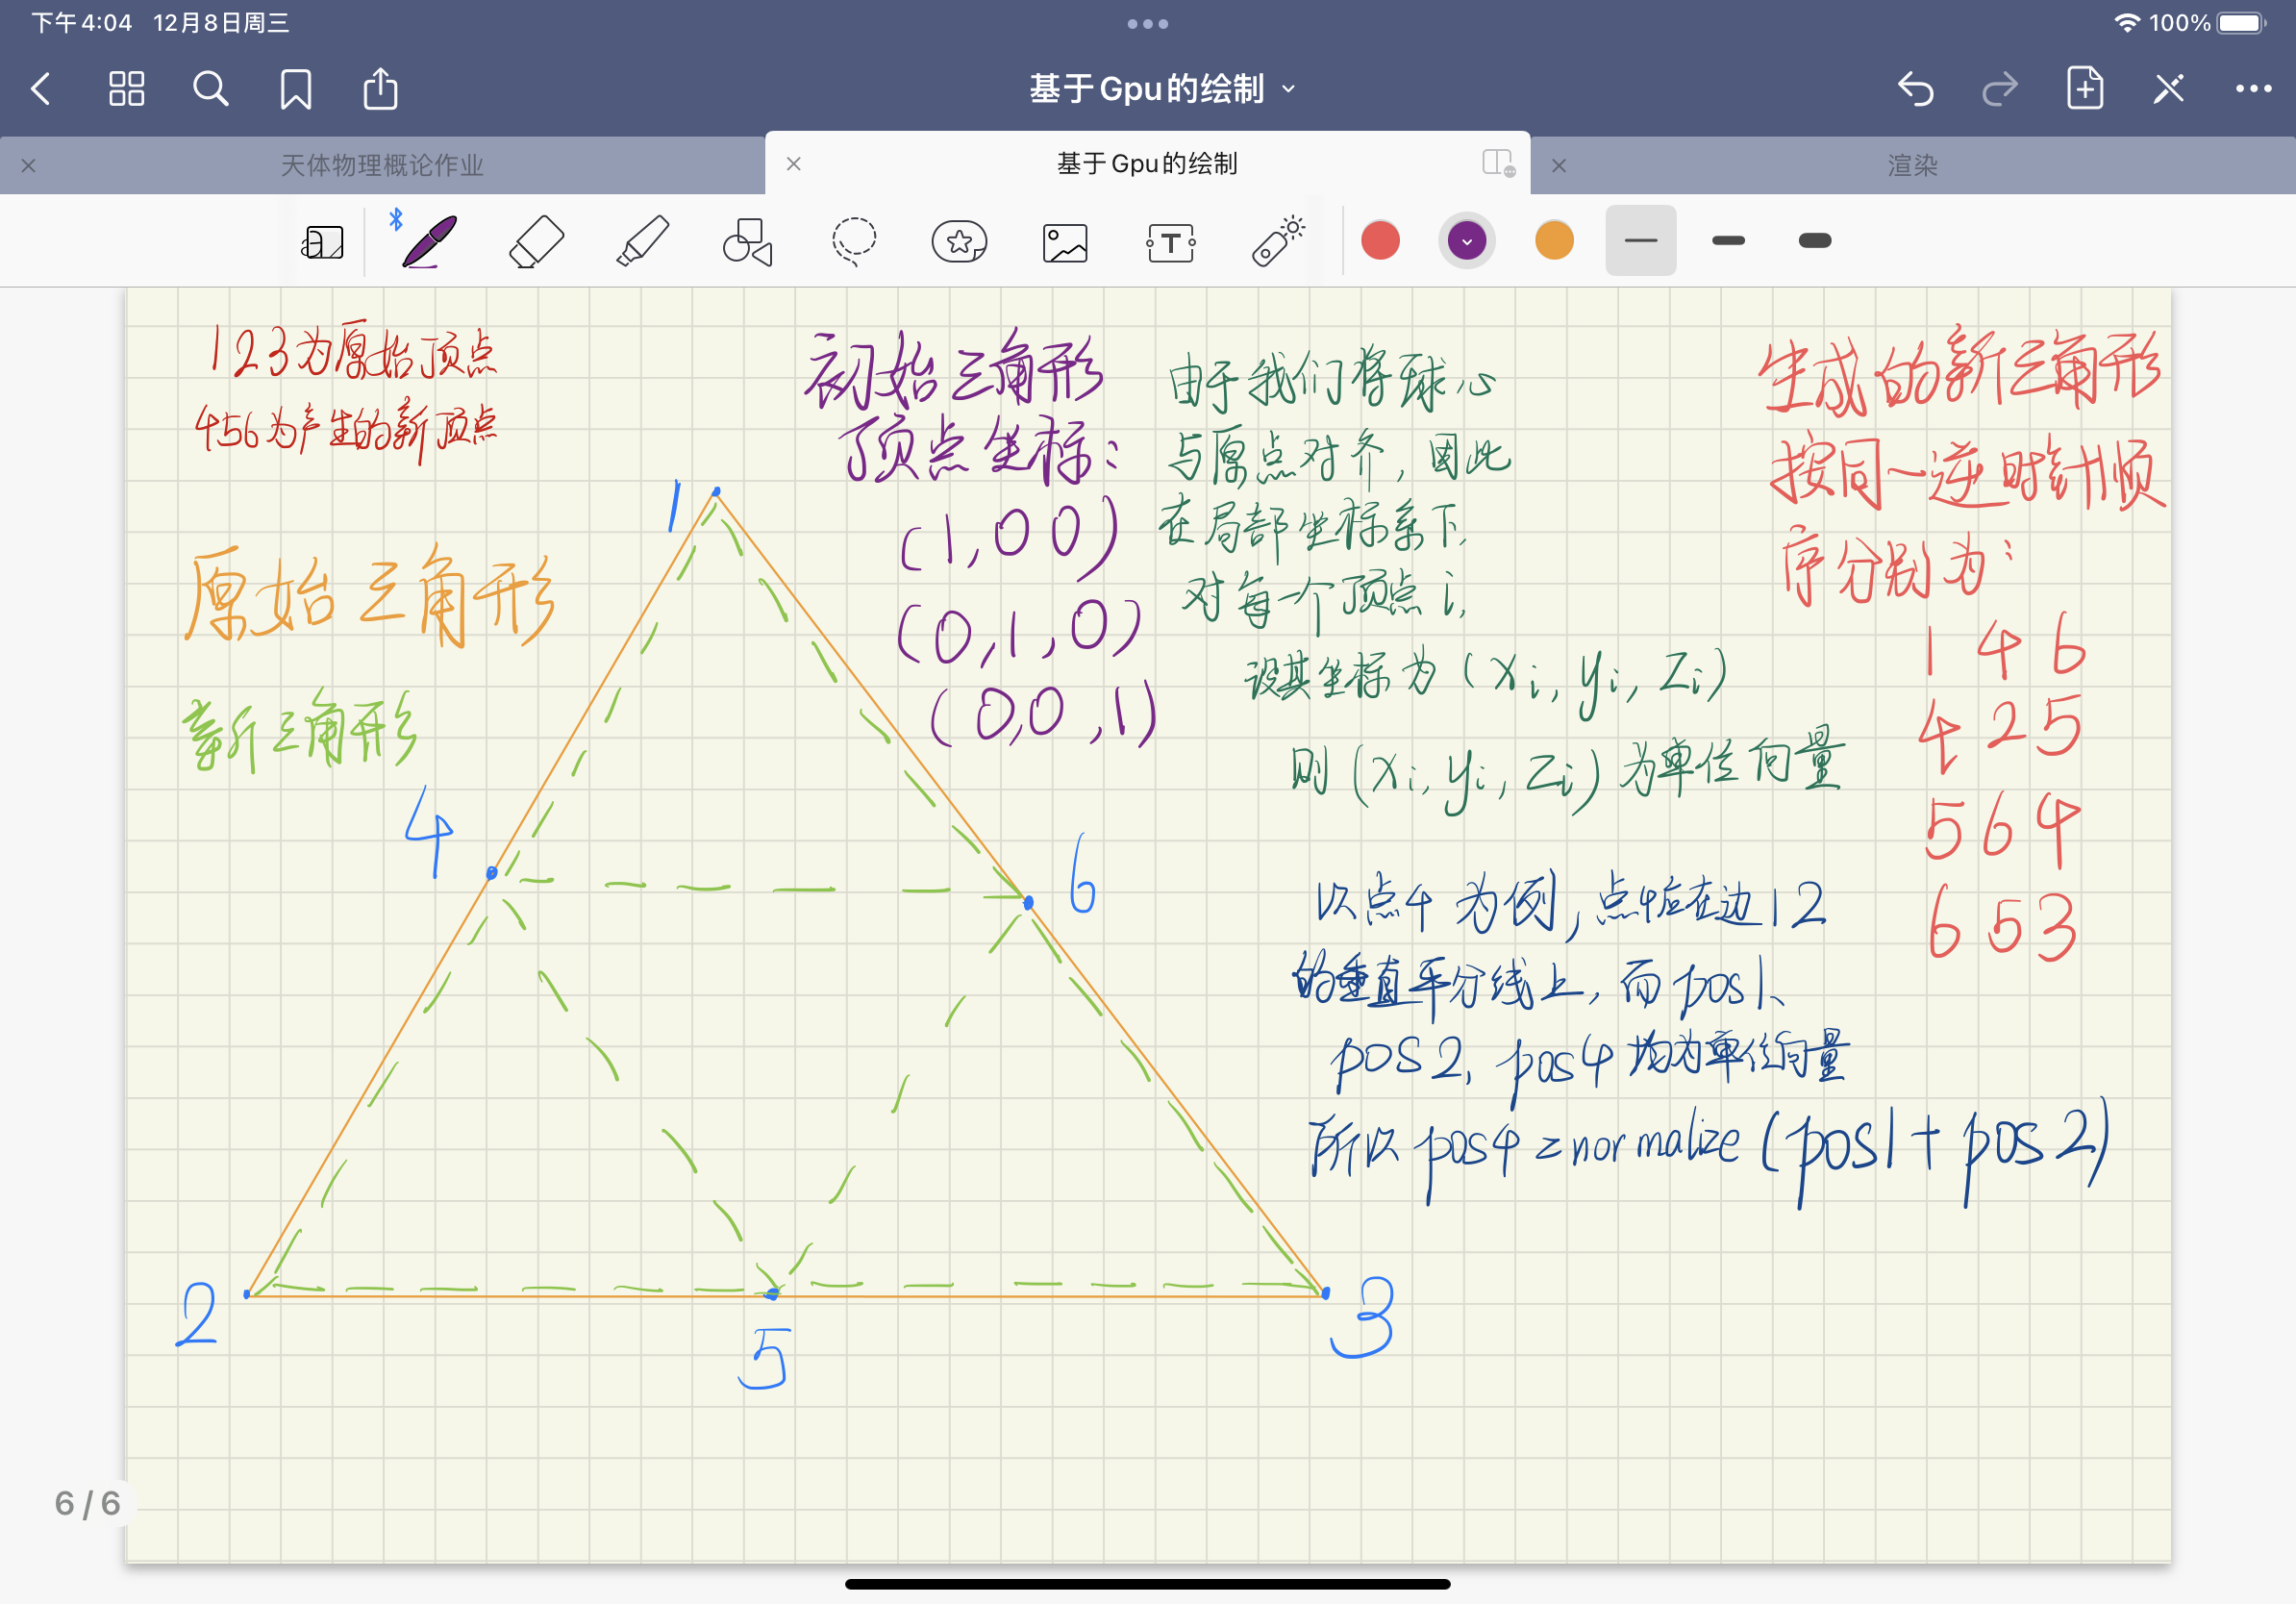 下午4:04 12月8日周三
100%
基于Gpu的绘制
天体物理概论作业
基于Gpu的绘制
渲染
123为原始顶点
456为产生的新顶点
原始三角形
新三角形
1
4
6
2
5
3
初始三角形
顶点坐标:
(1,00)
(0,1,0)
(0,0,1)
由于我们将球心
与原点对齐,因此
在局部坐标系下,
对每一个顶点i,
设其坐标为(xi,yi,zi)
则(xi,yi,zi)为单位向量
以点4为例,点4应在边12
的垂直平分线上,而pos1、
pos2,pos4均为单位向量
所以pos4=normalize(pos1+pos2)
生成的新三角形
按同一逆时针顺
序分别为:
146
425
564
653
6/6